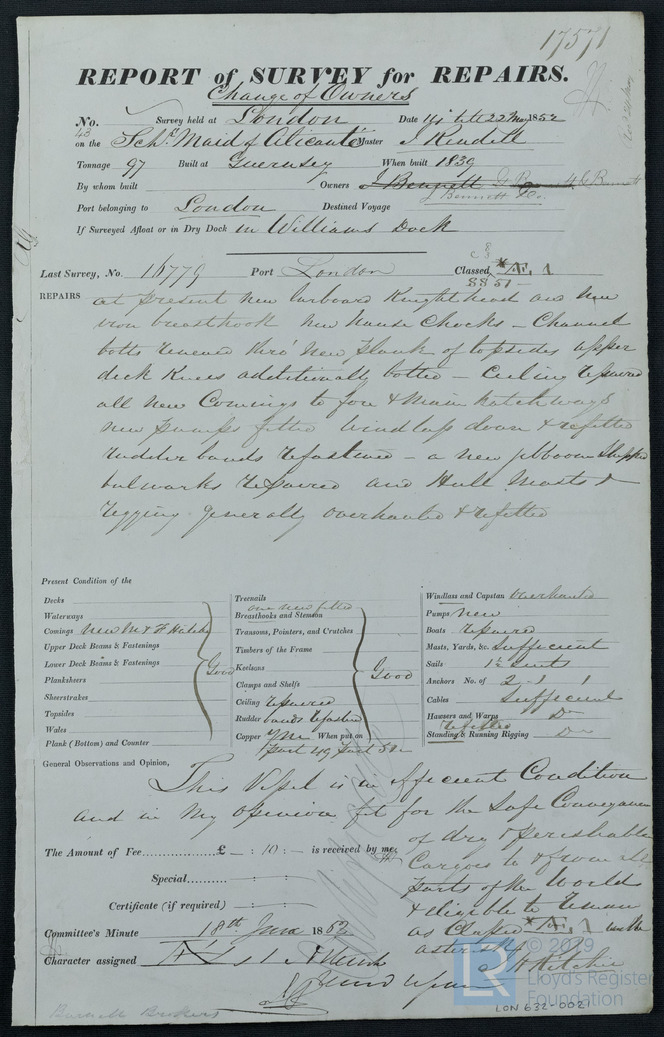 17571
REPORT of SURVEY for REPAIRS.
Change of Owners
No. 43 Survey held at London Date 1852
on the Schr. Maid of Alicante Master J Kendell
Tonnage 97 Built at Guernsey When built 1839
By whom built Owners J Bennett
J Bennett & Co.
Port belonging to London Destined Voyage
If Surveyed Afloat or in Dry Dock in Williams Dock
Last Survey, No. 16779 Port London Classed *Æ 1
REPAIRS at present new larboard Knighthead and new
iron breasthook new hause Chocks - Channel
bolts renewed thro' new plank of topsides upper
deck Knees additionally bolted - Ceiling repaired
all new Comings to fore & main hatchways
new pumps fitted windlass down & refitted
rudder bands refastened - a new jibboom shipped
bulwarks repaired and Hull Masts &
rigging generally overhauled & refitted
Present Condition of the
Decks
Waterways
Comings new M & F Hatches
Upper Deck Beams & Fastenings
Lower Deck Beams & Fastenings
Planksheers
Sheerstrakes
Topsides
Wales
Plank (Bottom) and Counter
Good
Treenails
one new fitted
Breasthooks and Stemson
Transoms, Pointers, and Crutches
Timbers of the Frame
Keelsons
Clamps and Shelfs
Ceiling repaired
Rudder bands refastd
Copper When put on
part 49 part 52
Good
Windlass and Capstan overhauled
Pumps new
Boats repaired
Masts, Yards, &c. Sufficient
Sails 1 suit
Anchors No. of 2 1 1
Cables Sufficient
Hawsers and Warps Do
refitted
Standing & Running Rigging Do
General Observations and Opinion,
This Vessel is in efficient Condition
and in my opinion fit for the Safe Conveyance
of dry & perishable
Cargoes to & from all
parts of the World
& eligible to remain
as Classed *Æ 1 in the
asterisk
The Amount of Fee £ — : 10 : — is received by me,
Special
Certificate (if required)
Committee's Minute 18th June 1852
Character assigned
Ritchie
© 2019
Lloyd's Register
Foundation
LON 632-0021